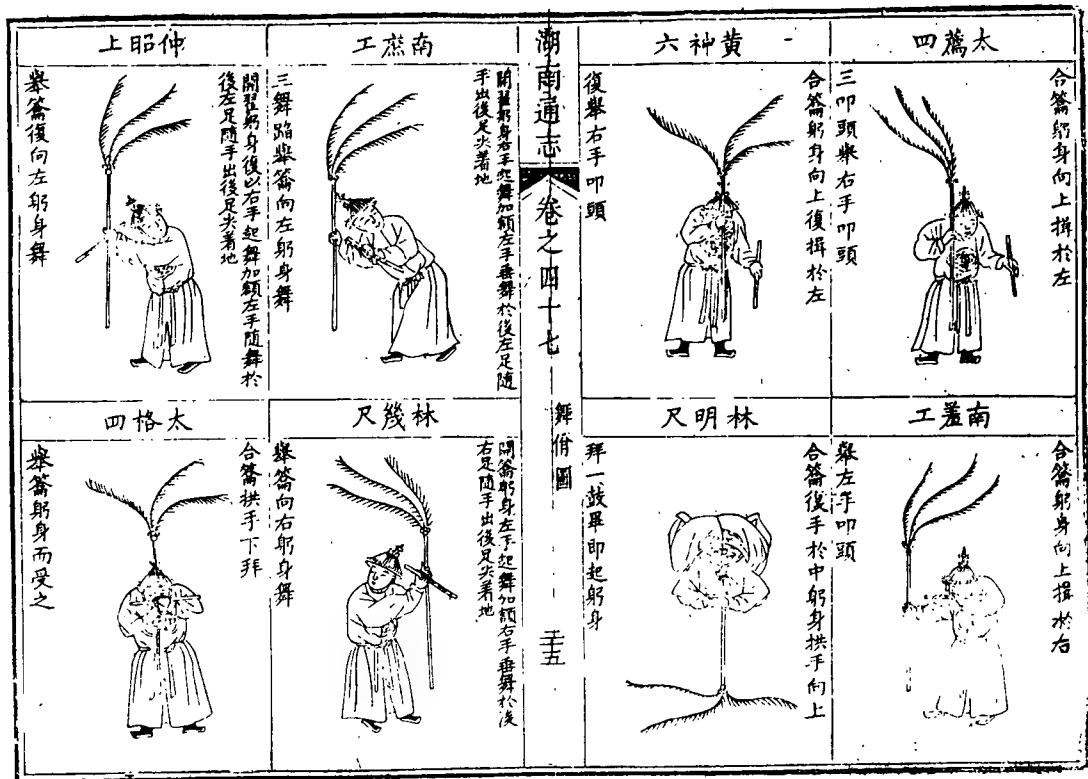 太薦四
合籥躬身向上揖於左
三叩頭舉右手叩頭
南羞工
合籥躬身向上揖於右
舉左手叩頭
黃神六
合籥躬身向上復揖於左
復舉右手叩頭
林明尺
合籥復手於中躬身拱手向上
拜一鼓畢即起躬身
湖南通志
卷之四十七
舞佾圖
三十五
南庶工
開籥躬身右手起舞加額左手垂舞於後左足隨
手出後足尖着地
三舞蹈舉籥向左躬身舞
林幾尺
開籥躬身左手起舞加額右手垂舞於後
右足隨手出後足尖着地
舉籥向右躬身舞
仲昭上
開籥躬身復以右手起舞加額左手隨舞於
後左足隨手出後足尖着地
舉籥復向左躬身舞
太格四
合籥拱手下拜
舉籥躬身而受之